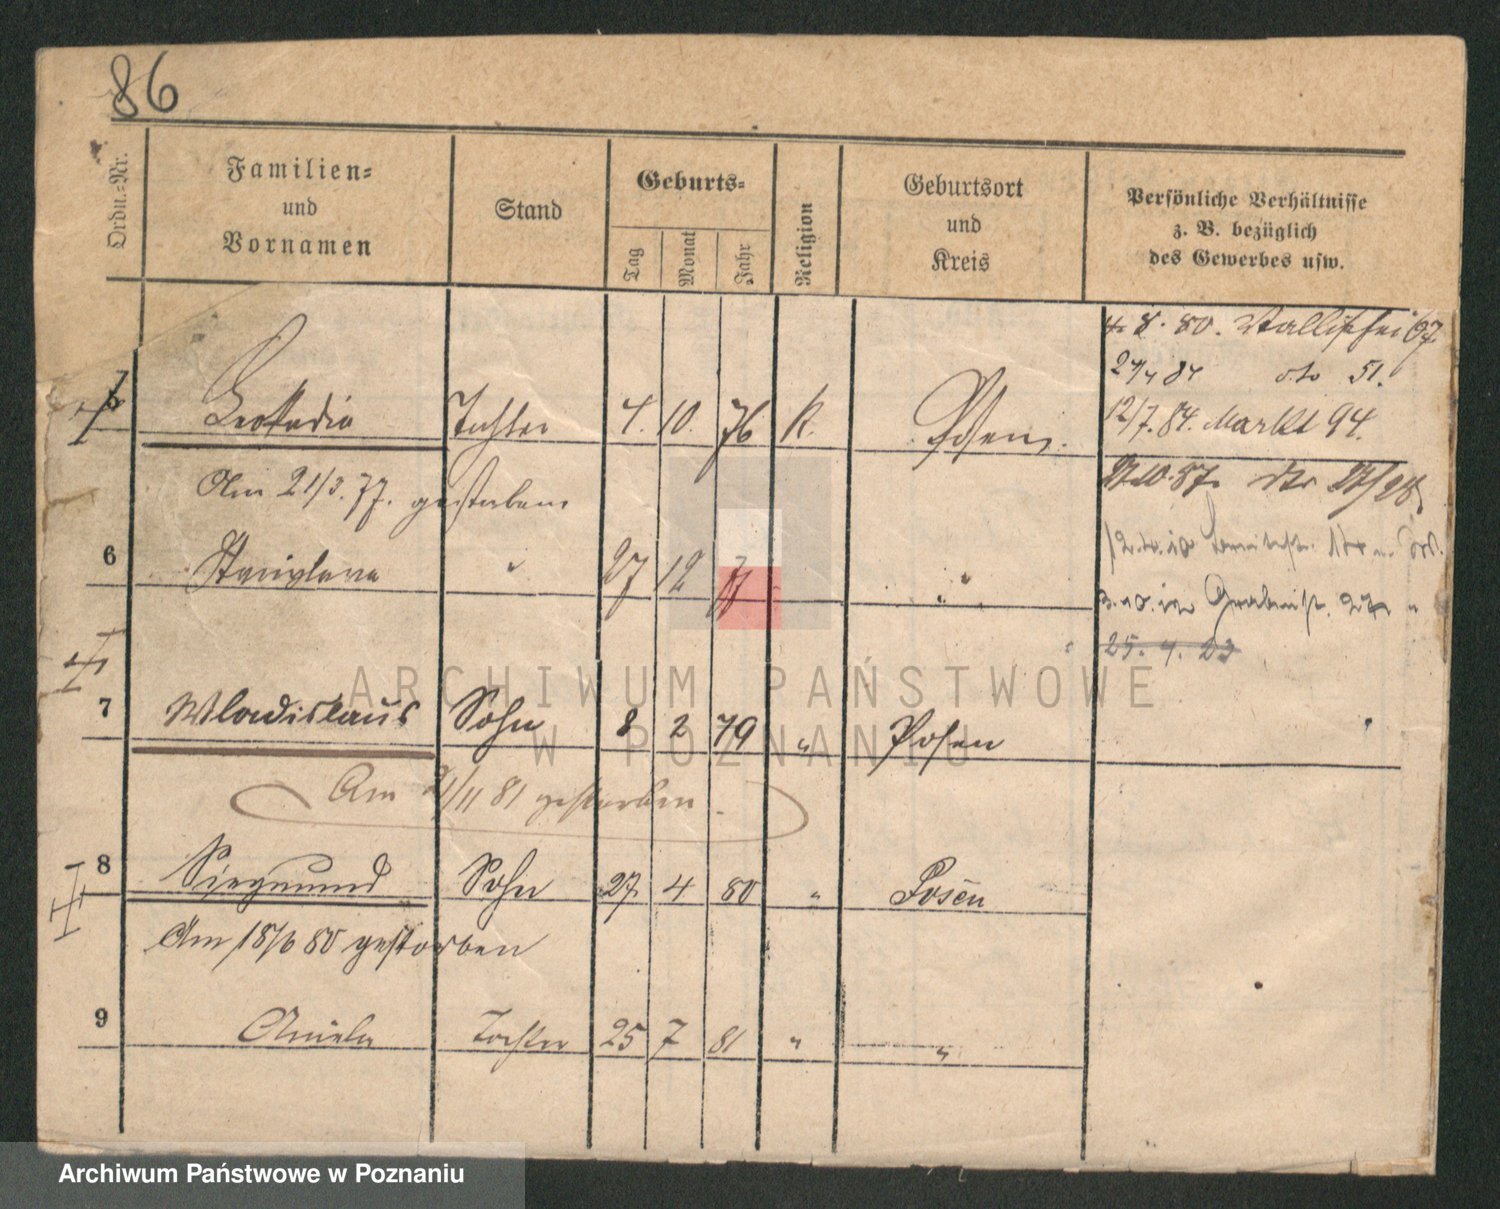 86
Ordn.=Nr.
Familien=
und
Vornamen
Stand
Geburts=
Tag
Monat
Jahr
Religion
Geburtsort
und
Kreis
Persönliche Verhältnisse
z. B. bezüglich
des Gewerbes usw.
4. 8. 80. Wallischei 67
27/4 84 dto 51.
Leokadia Tochter 7. 10. 76 K. Posen.
12/7.84. Markt 94.
Am 21/3. 77. gestorben
10.87. Nr
6 Stanislawa " 27 12 77 " "
25. 4. 23
7 Wladislaus Sohn 8 2 79 " Posen
Am 9/11 81 gestorben.
8 Siegmund Sohn 27 4 80 " Posen
Am 18/6 80 gestorben
9 Aniela Tochter 25 7 81 " "
ARCHIWUM PAŃSTWOWE
W POZNANIU
Archiwum Państwowe w Poznaniu